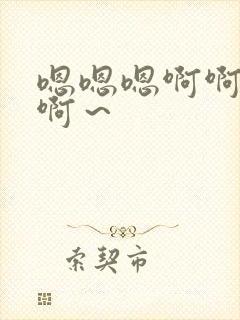 嗯嗯嗯啊啊
啊～
索契市